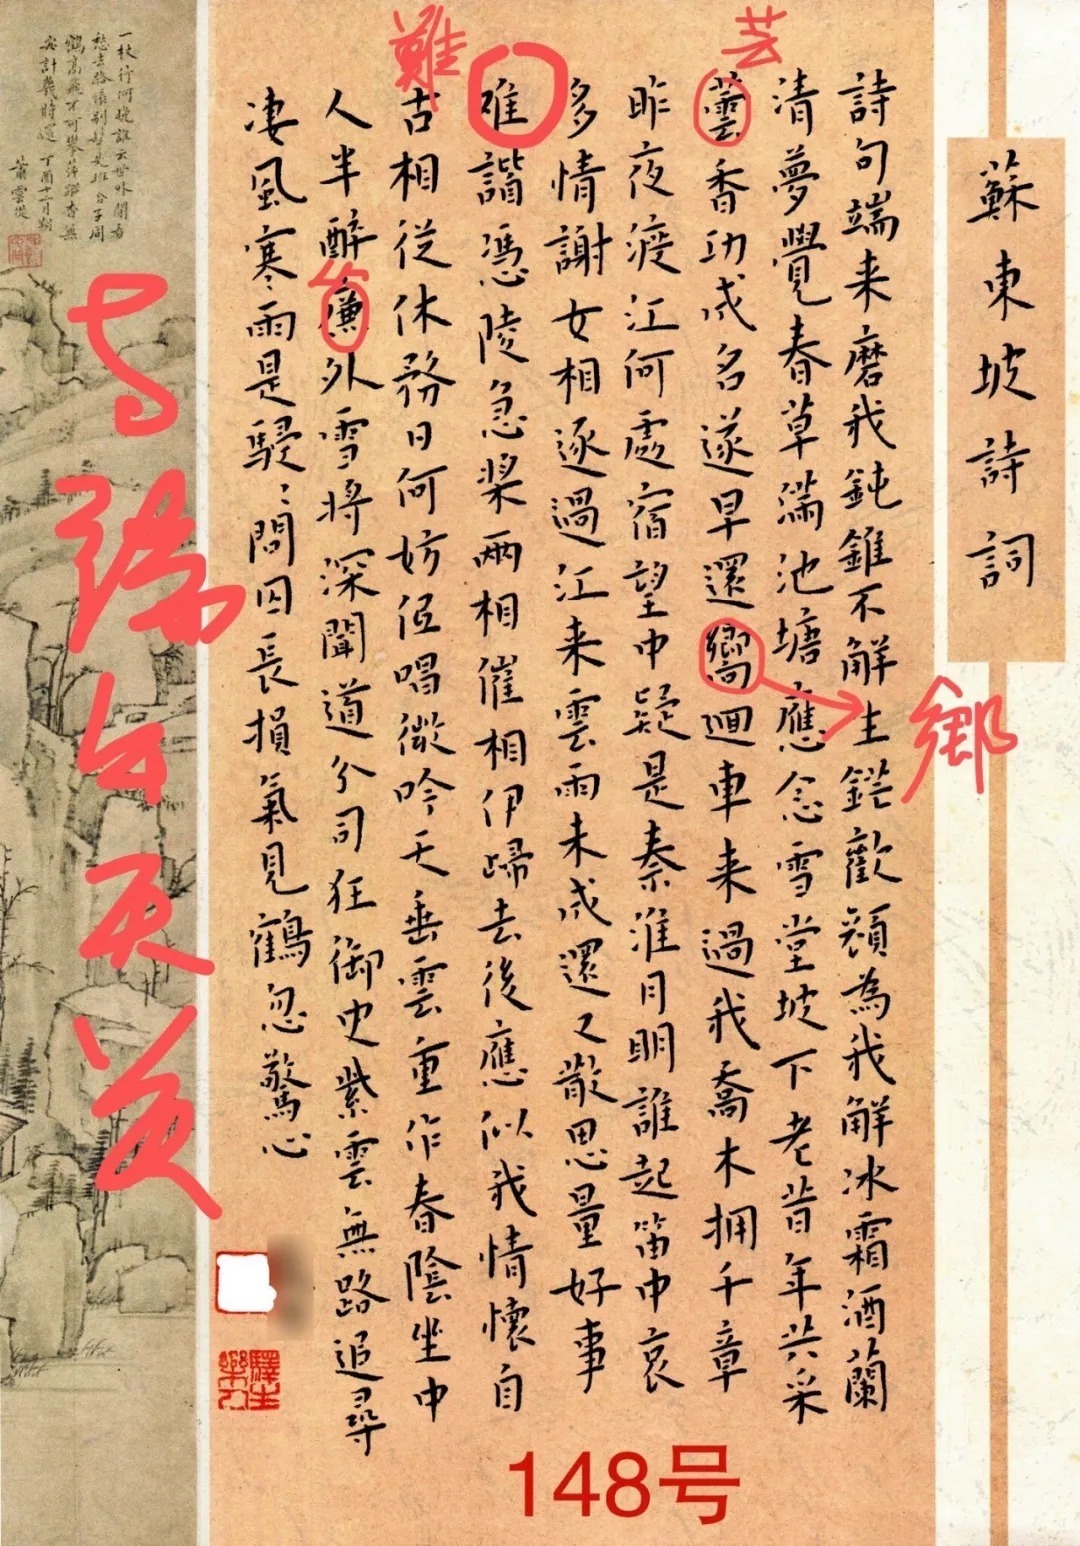 蘇東坡詩詞
詩句端来磨我鈍錐不解生鋩歡顔為我解冰霜酒蘭
清夢覺春草滿池塘應念雪堂坡下老昔年共采
蕓香功成名遂早還嚮迴車来過我喬木擁千章
昨夜渡江何處宿望中疑是秦淮月明誰起笛中哀
多情謝女相逐過江来雲雨未成還又散思量好事
难諧馮陵急槳兩相催相伊歸去後應似我情懷自
古相從休務日何妨低唱微吟天垂雲重作春陰坐中
人半醉廉外雪将深聞道分司狂御史紫雲無路追尋
凄風寒雨是駸〻問囚長損氣見鶴忽驚心
難
芸
鄉
竹
148号
一枝行何晚誰云世外閒看
鶴高飛不可攀萍蹤杳無
定計幾時還丁酉十一月朔
蕭雲從